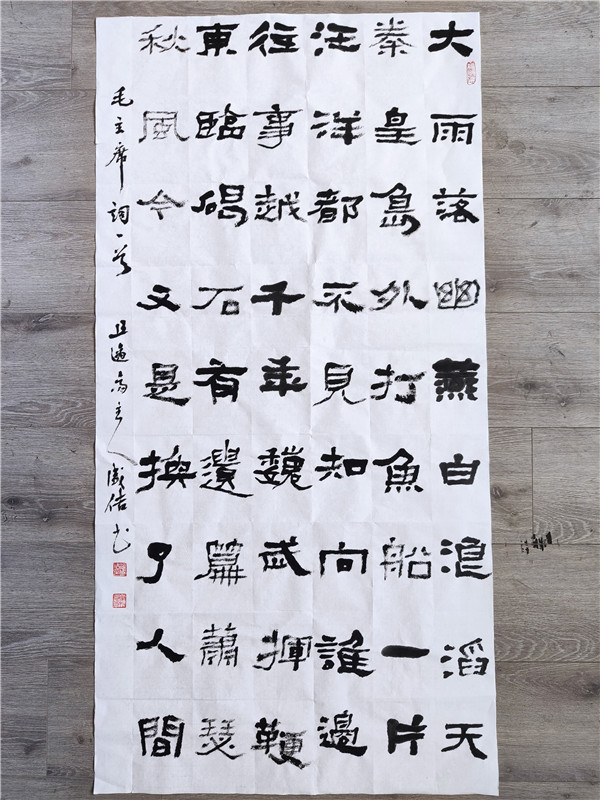 大雨落幽燕白浪滔天
秦皇島外打魚船一片
汪洋都不見知向誰邊
往事越千年魏武揮鞭
東臨碣石有遺篇蕭瑟
秋風今又是換了人間
毛主席詞一首 主人 书